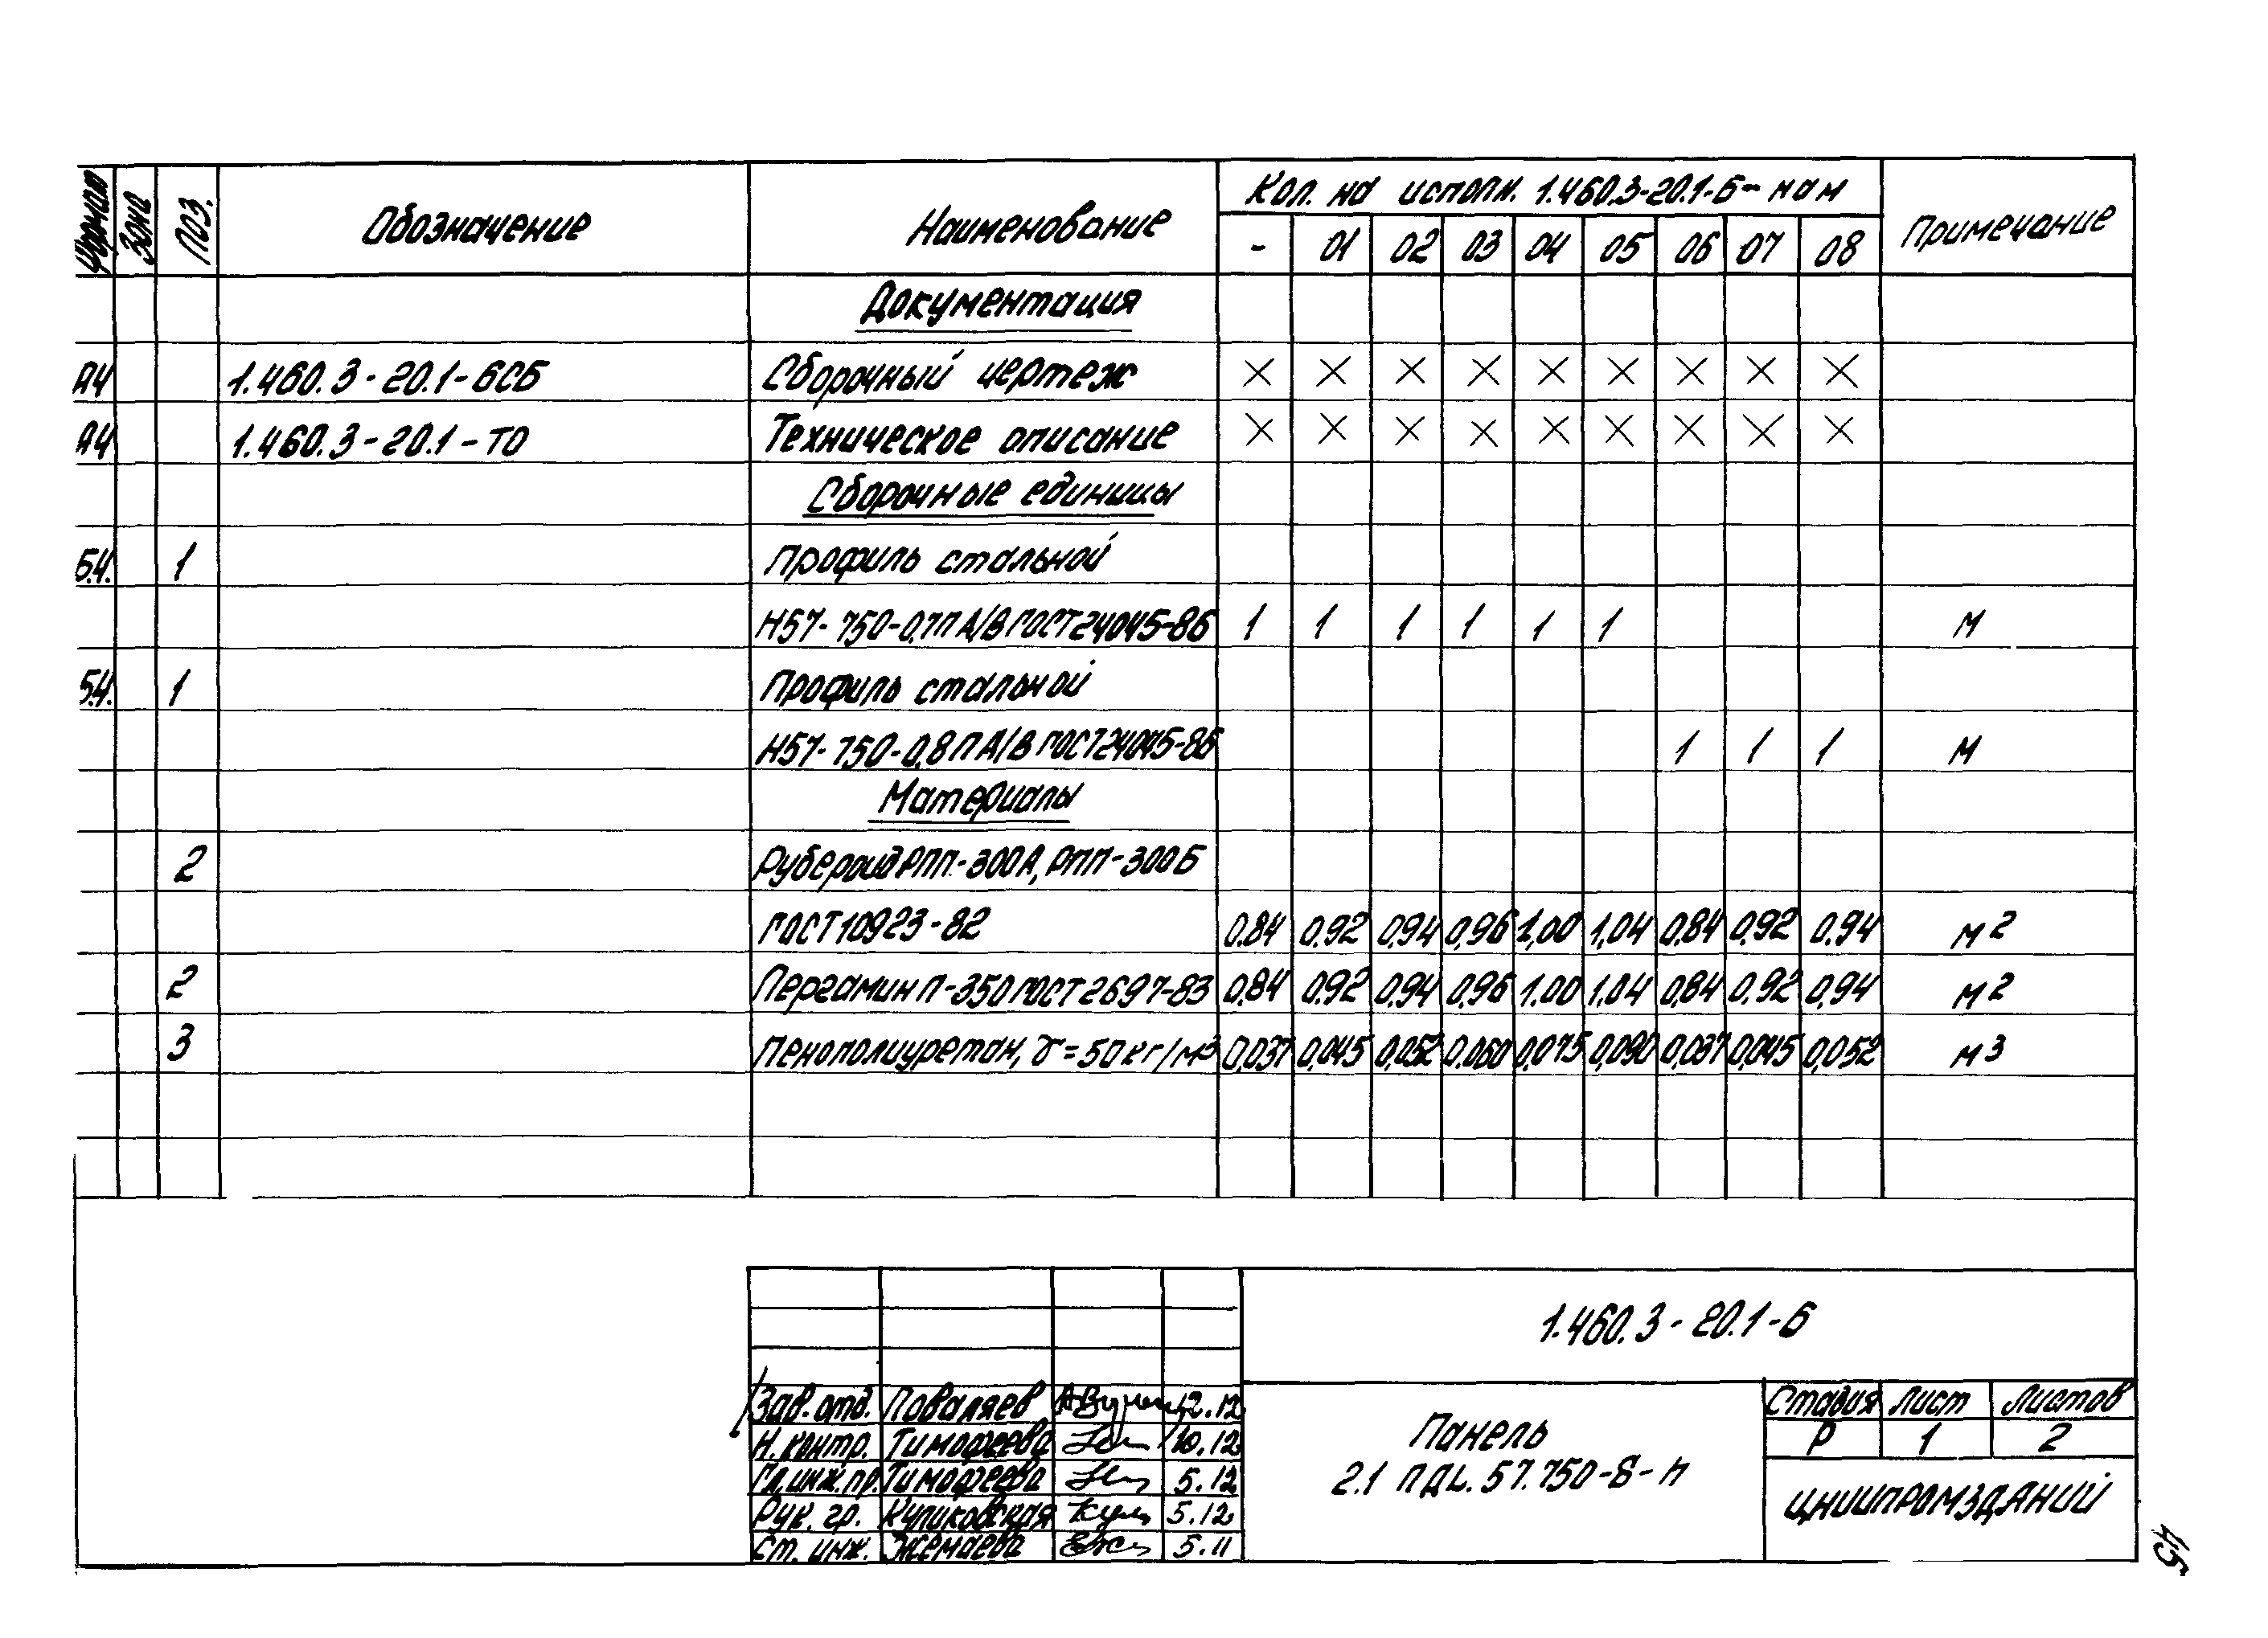 Формат Зона Поз. Обозначение Наименование Кол. на исполн. 1.460.3-20.1-6- нам Примечание
- 01 02 03 04 05 06 07 08
Документация
А4 1.460.3-20.1-6СБ Сборочный чертеж X X X X X X X X X
А4 1.460.3-20.1-ТО Техническое описание X X X X X X X X X
Сборочные единицы
Б.Ч. 1 Профиль стальной
Н57-750-0,7П А/В ГОСТ 24045-86 1 1 1 1 1 1 М
Б.Ч. 1 Профиль стальной
Н57-750-0,8П А/В ГОСТ 24045-86 1 1 1 М
Материалы
2 Рубероид РПП-300А, РПП-300Б
ГОСТ 10923-82 0.84 0,92 0,94 0,96 1,00 1,04 0,84 0,92 0,94 М²
2 Пергамин П-350 ГОСТ 2697-83 0,84 0.92 0,94 0,96 1.00 1.04 0,84 0,92 0,94 М²
3 Пенополиуретан, γ=50кг/м³ 0,037 0,045 0,052 0.060 0,075 0,090 0,037 0,045 0,052 М³
1.460.3-20.1-6
Зав. отд. Поваляев 12.12
Н. контр. Тимофеева 10.12
Гл. инж. пр. Тимофеева 5.12
Рук. гр. Куликовская 5.12
Ст. инж. Жемаева 5.11
Панель
2.1 ПДL.57.750-S-H
Стадия Лист Листов
Р 1 2
ЦНИИПРОМЗДАНИЙ
45